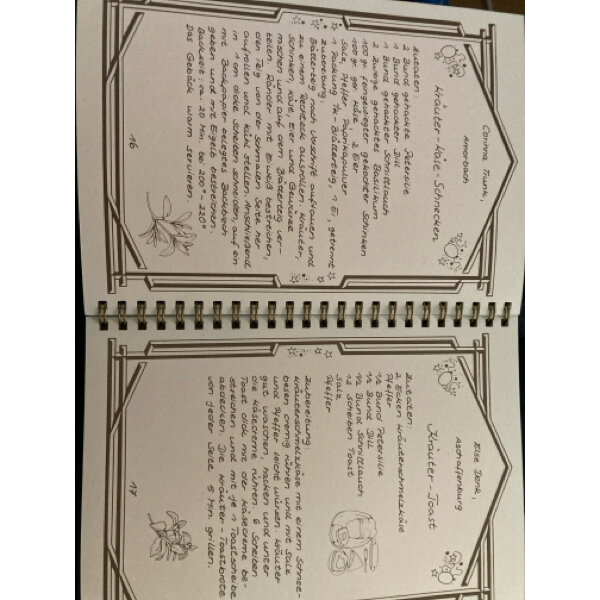 Corinna Trunk,
Amorbach
Kräuter-Käse-Schnecken
Zutaten:
2 Bund gehackte Petersilie
1 Bund gehackter Dill
1 Bund gehackter Schnittlauch
2 Zweige gehacktes Basilikum
100 gr. feingewiegter gekochter Schinken
100 gr. ger. Käse 2 Eier
Salz, Pfeffer Paprikapulver
1 Packung TK-Blätterteig, 1 Ei, getrennt
Zubereitung:
Blätterteig nach Vorschrift auftauen und
zu einem Rechteck ausrollen. Kräuter,
Schinken, Käse, Eier und Gewürze
mischen und auf dem Blätterteig ver-
teilen. Ränder mit Eiweiß bestreichen,
den Teig von der schmalen Seite her
aufrollen und kühl stellen. Anschließend
in 1 cm dicke Scheiben schneiden, auf ein
mit Backpapier belegtes Backblech
geben und mit Eigelb bestreichen.
Backzeit: ca. 20 Min. bei 200° - 220°
Das Gebäck warm servieren.
16
Else Denk,
Aschaffenburg
Kräuter-Toast
Zutaten:
2 Ecken Kräuterschmelzkäse
Pfeffer
1/2 Bund Petersilie
1/2 Bund Dill
1/2 Bund Schnittlauch
12 Scheiben Toast
Salz
Pfeffer
Zubereitung:
Kräuterschmelzkäse mit einem Schnee-
besen cremig rühren und mit Salz
und Pfeffer leicht würzen. Kräuter
gut waschen, hacken und unter
die Käsecreme rühren. 6 Scheiben
Toast dick mit der Käsecreme be-
streichen und mit je 1 Toastscheibe
abdecken. Die Kräuter-Toastbrote
von jeder Seite 5 Min. grillen.
17